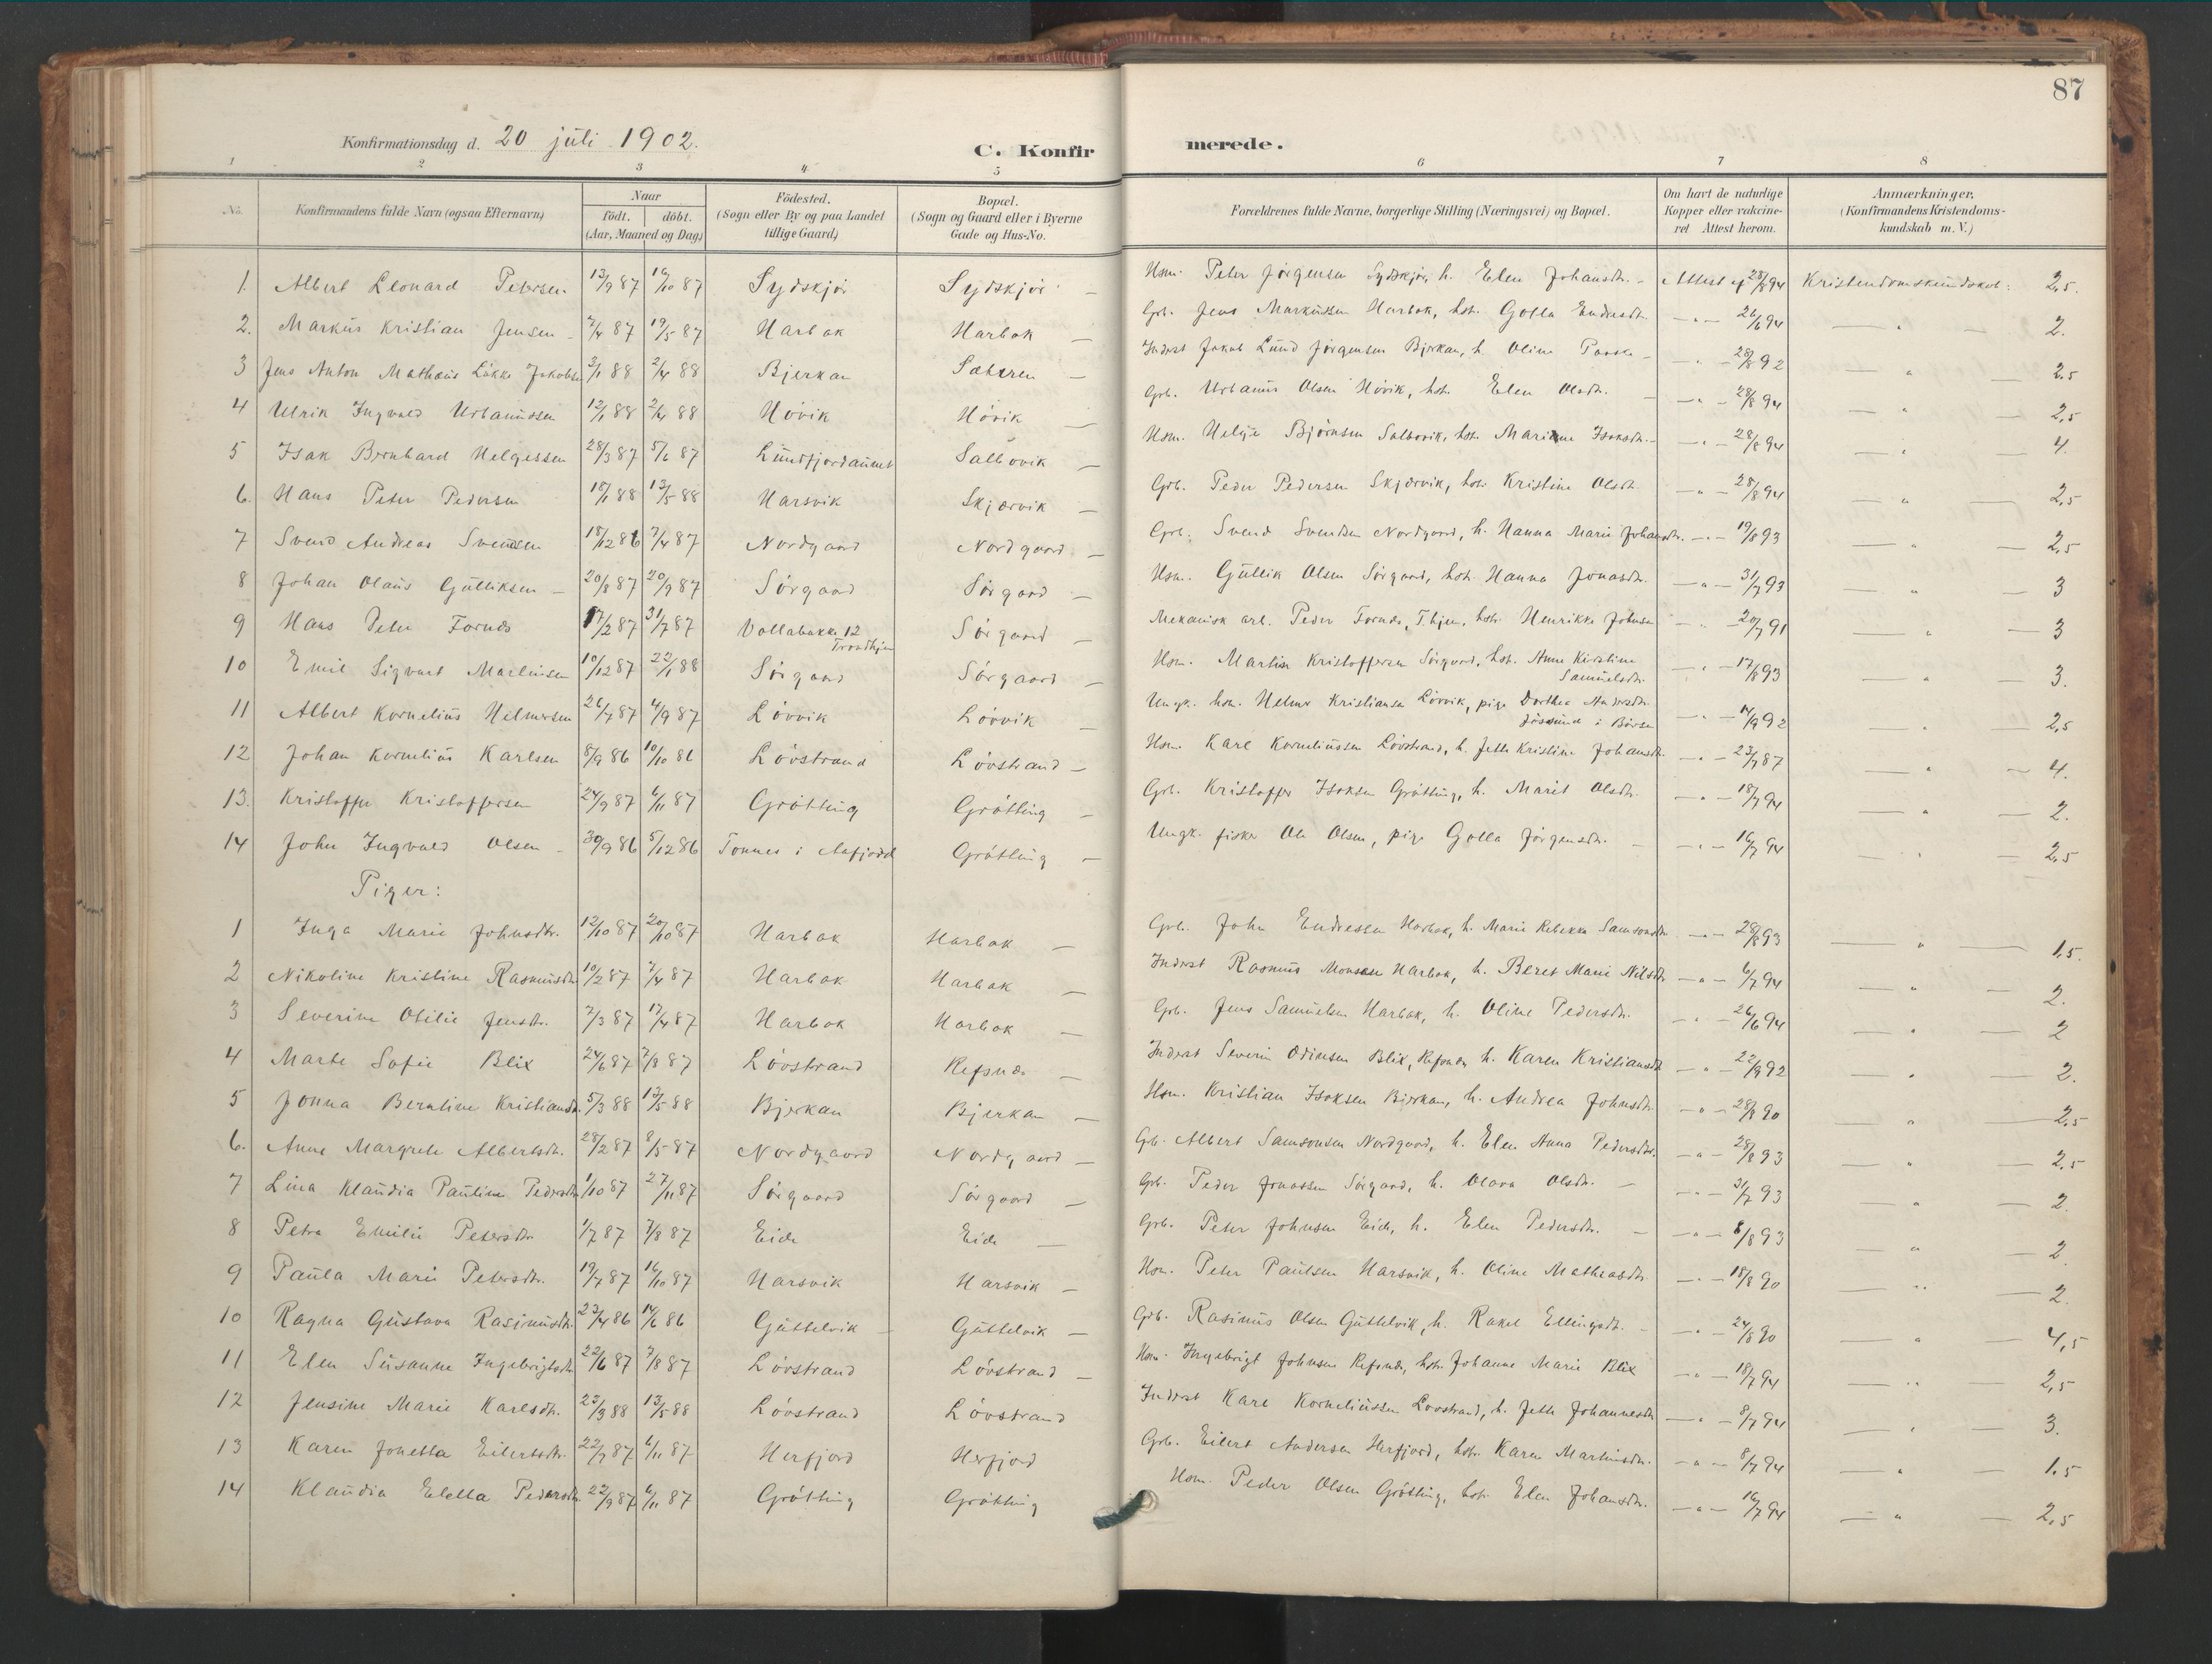 87
Konfirmationsdag d. 20 juli 1902.
C. Konfirmerede.
1 2 3 4 5 6 7 8
No. Konfirmandens fulde Navn (ogsaa Efternavn) Naar födt. döbt. (Aar, Maaned og Dag) Födested. (Sogn eller By og paa Landet tillige Gaard) Bopæl. (Sogn og Gaard eller i Byerne Gade og Hus-No. Forældrenes fulde Navne, borgerlige Stilling (Næringsvei) og Bopæl. Om havt de naturlige Kopper eller vakcineret Attest herom. Anmærkninger. (Konfirmandens Kristendomskundskab m. V.)
1. Albert Leonard Petersen 13/9 87 16/10 87 Sydskjör Sydskjör – Hsm. Peter Jörgensen Sydskjör, h. Elen Johansdtr. – Attest af 28/8 94 Kristendomskundskab: 2,5.
2. Markus Kristian Jensen – 7/4 87 19/5 87 Harbak Harbak – Grb. Jens Markussen Harbak, hst. Golla Endresdtr. – " – 26/6 94 – " – 2.
3 Jens Anton Mathæus Lükke Jakobsen 3/1 88 2/4 88 Bjerkan Sæteren – Inderst Jakob Lund Jörgensen Bjerkan, h. Oline Paaske – – " – 28/8 92 – " – 2.5
4 Ulrik Ingvald Urbanussen 12/1 88 2/4 88 Hövik Hövik – Grb. Urbanus Olsen Hövik, hst. Elen Olsdtr. – – " – 28/8 94 – " – 2,5
5 Isak Bernhard Helgessen 28/3 87 5/6 87 Lundfjordaunet Salbovik – Hsm. Helge Björnsen Salbovik, hst. Marianne Isaksdtr. – – " – 28/8 94 – " – 4.
6. Hans Peter Pedersen 18/1 88 13/5 88 Harsvik Skjærvik – Grb. Peder Pedersen Skjærvik, hst. Kristine Olsdtr. – " – 28/8 94 – " – 2,5
7 Svend Andreas Svendsen 18/12 86 7/4 87 Nordgaard Nordgaard – Grb. Svend Svendsen Nordgaard, h. Hanna Marie Johansdtr. – " – 19/8 93 – " – 2,5
8 Johan Olaus Gulliksen – 20/8 87 20/9 87 Sörgaard Sörgaard – Hsm. Gullik Olsen Sörgaard, hst. Hanna Jonasdtr. – " – 31/7 93 – " – 3
9 Hans Peter Fornes 17/2 87 31/7 87 Vollabakke 12 Trondhjem Sörgaard – Mekanisk arb. Peder Fornes, T.hjem, hst. Henrikke Johnsen – " – 20/7 91 – " – 3
10 Emil Sigvart Martinsen 10/12 87 22/1 88 Sörgaard Sörgaard – Hsm. Martin Kristoffersen Sörgaard, hst. Anne Kirstine Samuelsdtr. – " – 17/8 93 – " – 3.
11 Albert Kornelius Helmersen 26/7 87 4/9 87 Lövvik Lövvik – Ungk. hsm. Helmer Kristiansen Lövvik, pige Dorthea Andersdtr. Jössund i Börsa – " – 14/9 92 – " – 2,5
12 Johan Kornelius Karlsen 8/9 86 10/10 86 Lövstrand Lövstrand – Hsm. Karl Korneliussen Lövstrand, h. Jette Kristine Johansdtr. – " – 23/7 87 – " – 4.
13. Kristoffer Kristoffersen 24/9 87 6/11 87 Grötting Grötting – Grb. Kristoffer Isaksen Grötting, h. Marit Olsdtr. – " – 18/7 94 – " – 2.
14 John Ingvald Olsen – 30/9 86 5/12 86 Tonnes i Aafjord Grötting – Ungk. fisker Ole Olsen, pige Golla Jörgensdtr. – – " – 16/7 94 – " – 2,5
Piger:
1 Inga Marie Johnsdtr. 12/10 87 20/10 87 Harbak Harbak – Grb. John Endressen Harbak, h. Marie Rebekka Samsonsdtr. – " – 28/8 93 – " – 1,5.
2 Nikoline Kristine Rasmusdtr 10/2 87 7/4 87 Harbak Harbak – Inderst Rasmus Monsen Harbak, h. Beret Marie Nilsdtr – " – 6/7 94 – " – 2.
3 Severine Otilie Jensdtr. 7/3 87 17/4 87 Harbak Harbak – Grb. Jens Samuelsen Harbak, h. Oline Pedersdtr. – " – 26/6 94 – " – 2
4 Marte Sofie Blix 24/6 87 7/8 87 Lövstrand Refsnes – Inderst Severin Odinsen Blix, Refsnes, h. Karen Kristiansdtr – " – 22/9 92 – " – 2.
5 Jonna Berntine Kristiansdtr. 5/3 88 13/5 88 Bjerkan Bjerkan – Hsm. Kristian Isaksen Bjerkan, h. Andrea Johnsdtr. – " – 28/8 90 – " – 2,5
6. Anne Margrete Albertsdtr. 28/2 87 8/5 87 Nordgaard Nordgaard – Grb. Albert Samsonsen Nordgaard, h. Elen Anna Pedersdtr. – " – 28/8 93 – " – 2,5
7 Lina Klaudia Pauline Pedersdtr 1/10 87 27/11 87 Sörgaard Sörgaard – Grb. Peder Jonassen Sörgaard, h. Olava Olsdtr. – – " – 31/7 93 – " – 2.
8 Petra Emilie Petersdtr 1/7 87 7/8 87 Eide Eide – Grb. Peter Johnsen Eide, h. Elen Pedersdtr. – – " – 8/8 93 – " – 2
9 Paula Marie Petersdtr. 19/7 87 16/10 87 Harsvik Harsvik – Hsm. Peter Paulsen Harsvik, h. Oline Mathiasdtr. – " – 18/8 90 – " – 2.
10 Ragna Gustava Rasinusdtr. 23/4 86 14/6 86 Guttelvik – Guttelvik – Grb. Rasinus Olsen Guttelvik, h. Rakel Ellingsdtr. – – " – 24/8 90 – " – 4,5
11 Elen Susanne Ingebrigtsdtr 22/6 87 7/8 87 Lövstrand Lövstrand – Hsm. Ingebrigt Johnsen Refsnes, hst. Johanne Marie Blix – " – 18/7 94 – " – 2,5
12 Jensine Marie Karlsdtr. 23/3 88 13/5 88 Lövstrand Lövstrand Inderst Karl Korneliussen Lovstrand, h. Jette Johannesdtr – " – 8/7 94 – " – 3.
13 Karen Jonetta Eilertsdtr. 22/7 87 6/11 87 Herfjord Herfjord Grb. Eilert Andersen Herfjord, hst. Karen Martinsdtr. – " – 8/7 94 – " – 1.5
14 Klaudia Elella Pedersdtr 22/9 87 6/11 87 Grötting Grötting Hsm. Peder Olsen Grötting, hst. Elen Johansdtr. – " – 16/7 94 – " – 2,5